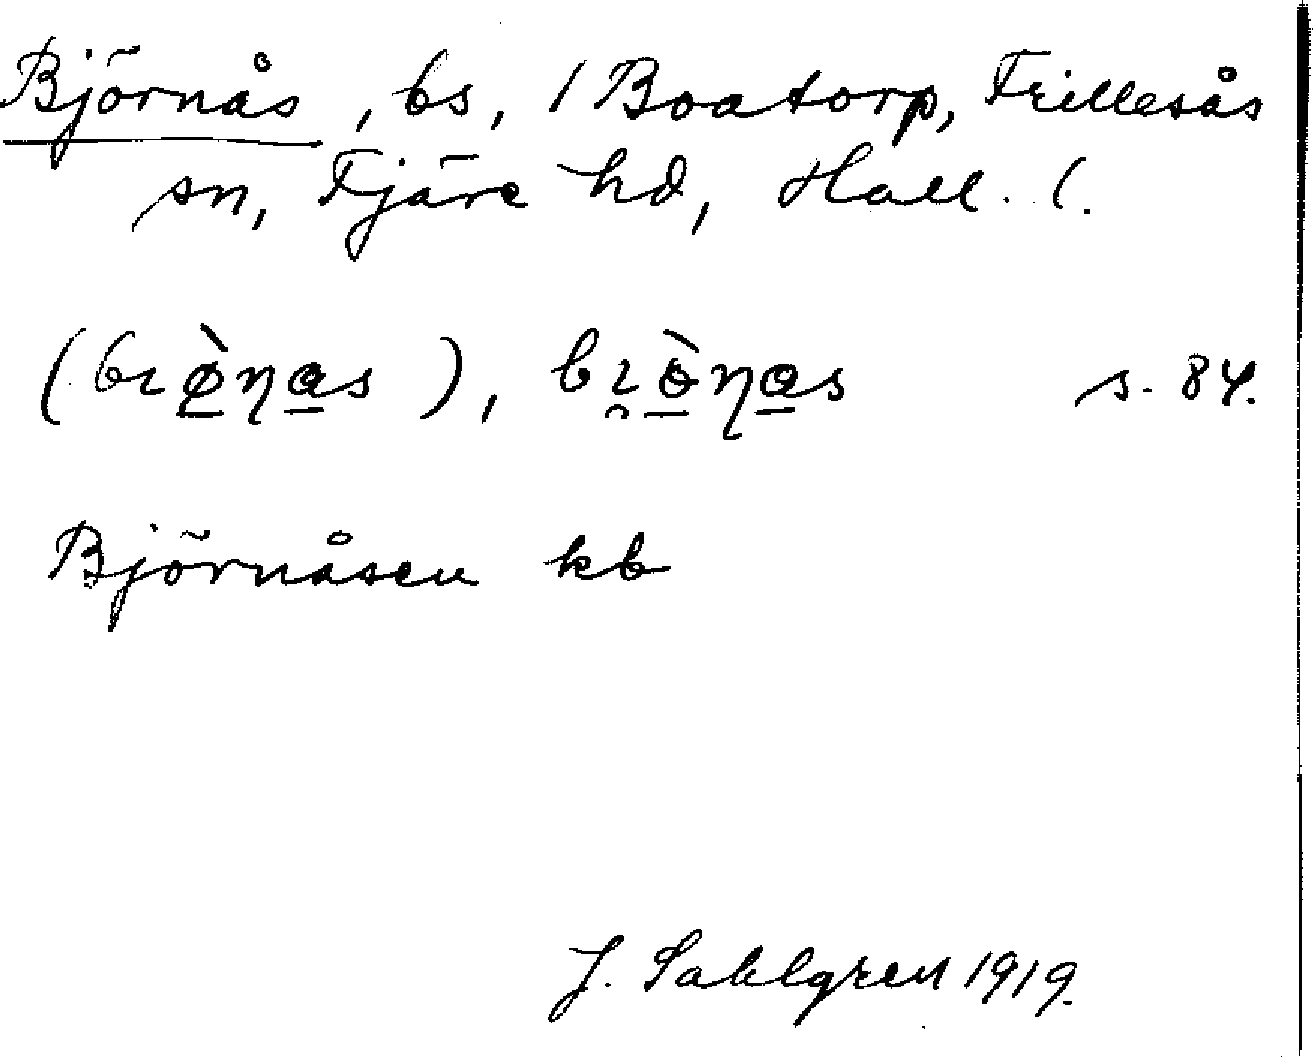 Björnås, bs, / Boatorp, Frillesås
sn, Fjäre hd, Hall. l.
(bɪø̠̀ŋa̠s), bɪ̯ö̠̀ŋa̠s s. 84.
Björnåsen kb
J. Sahlgren 1919.